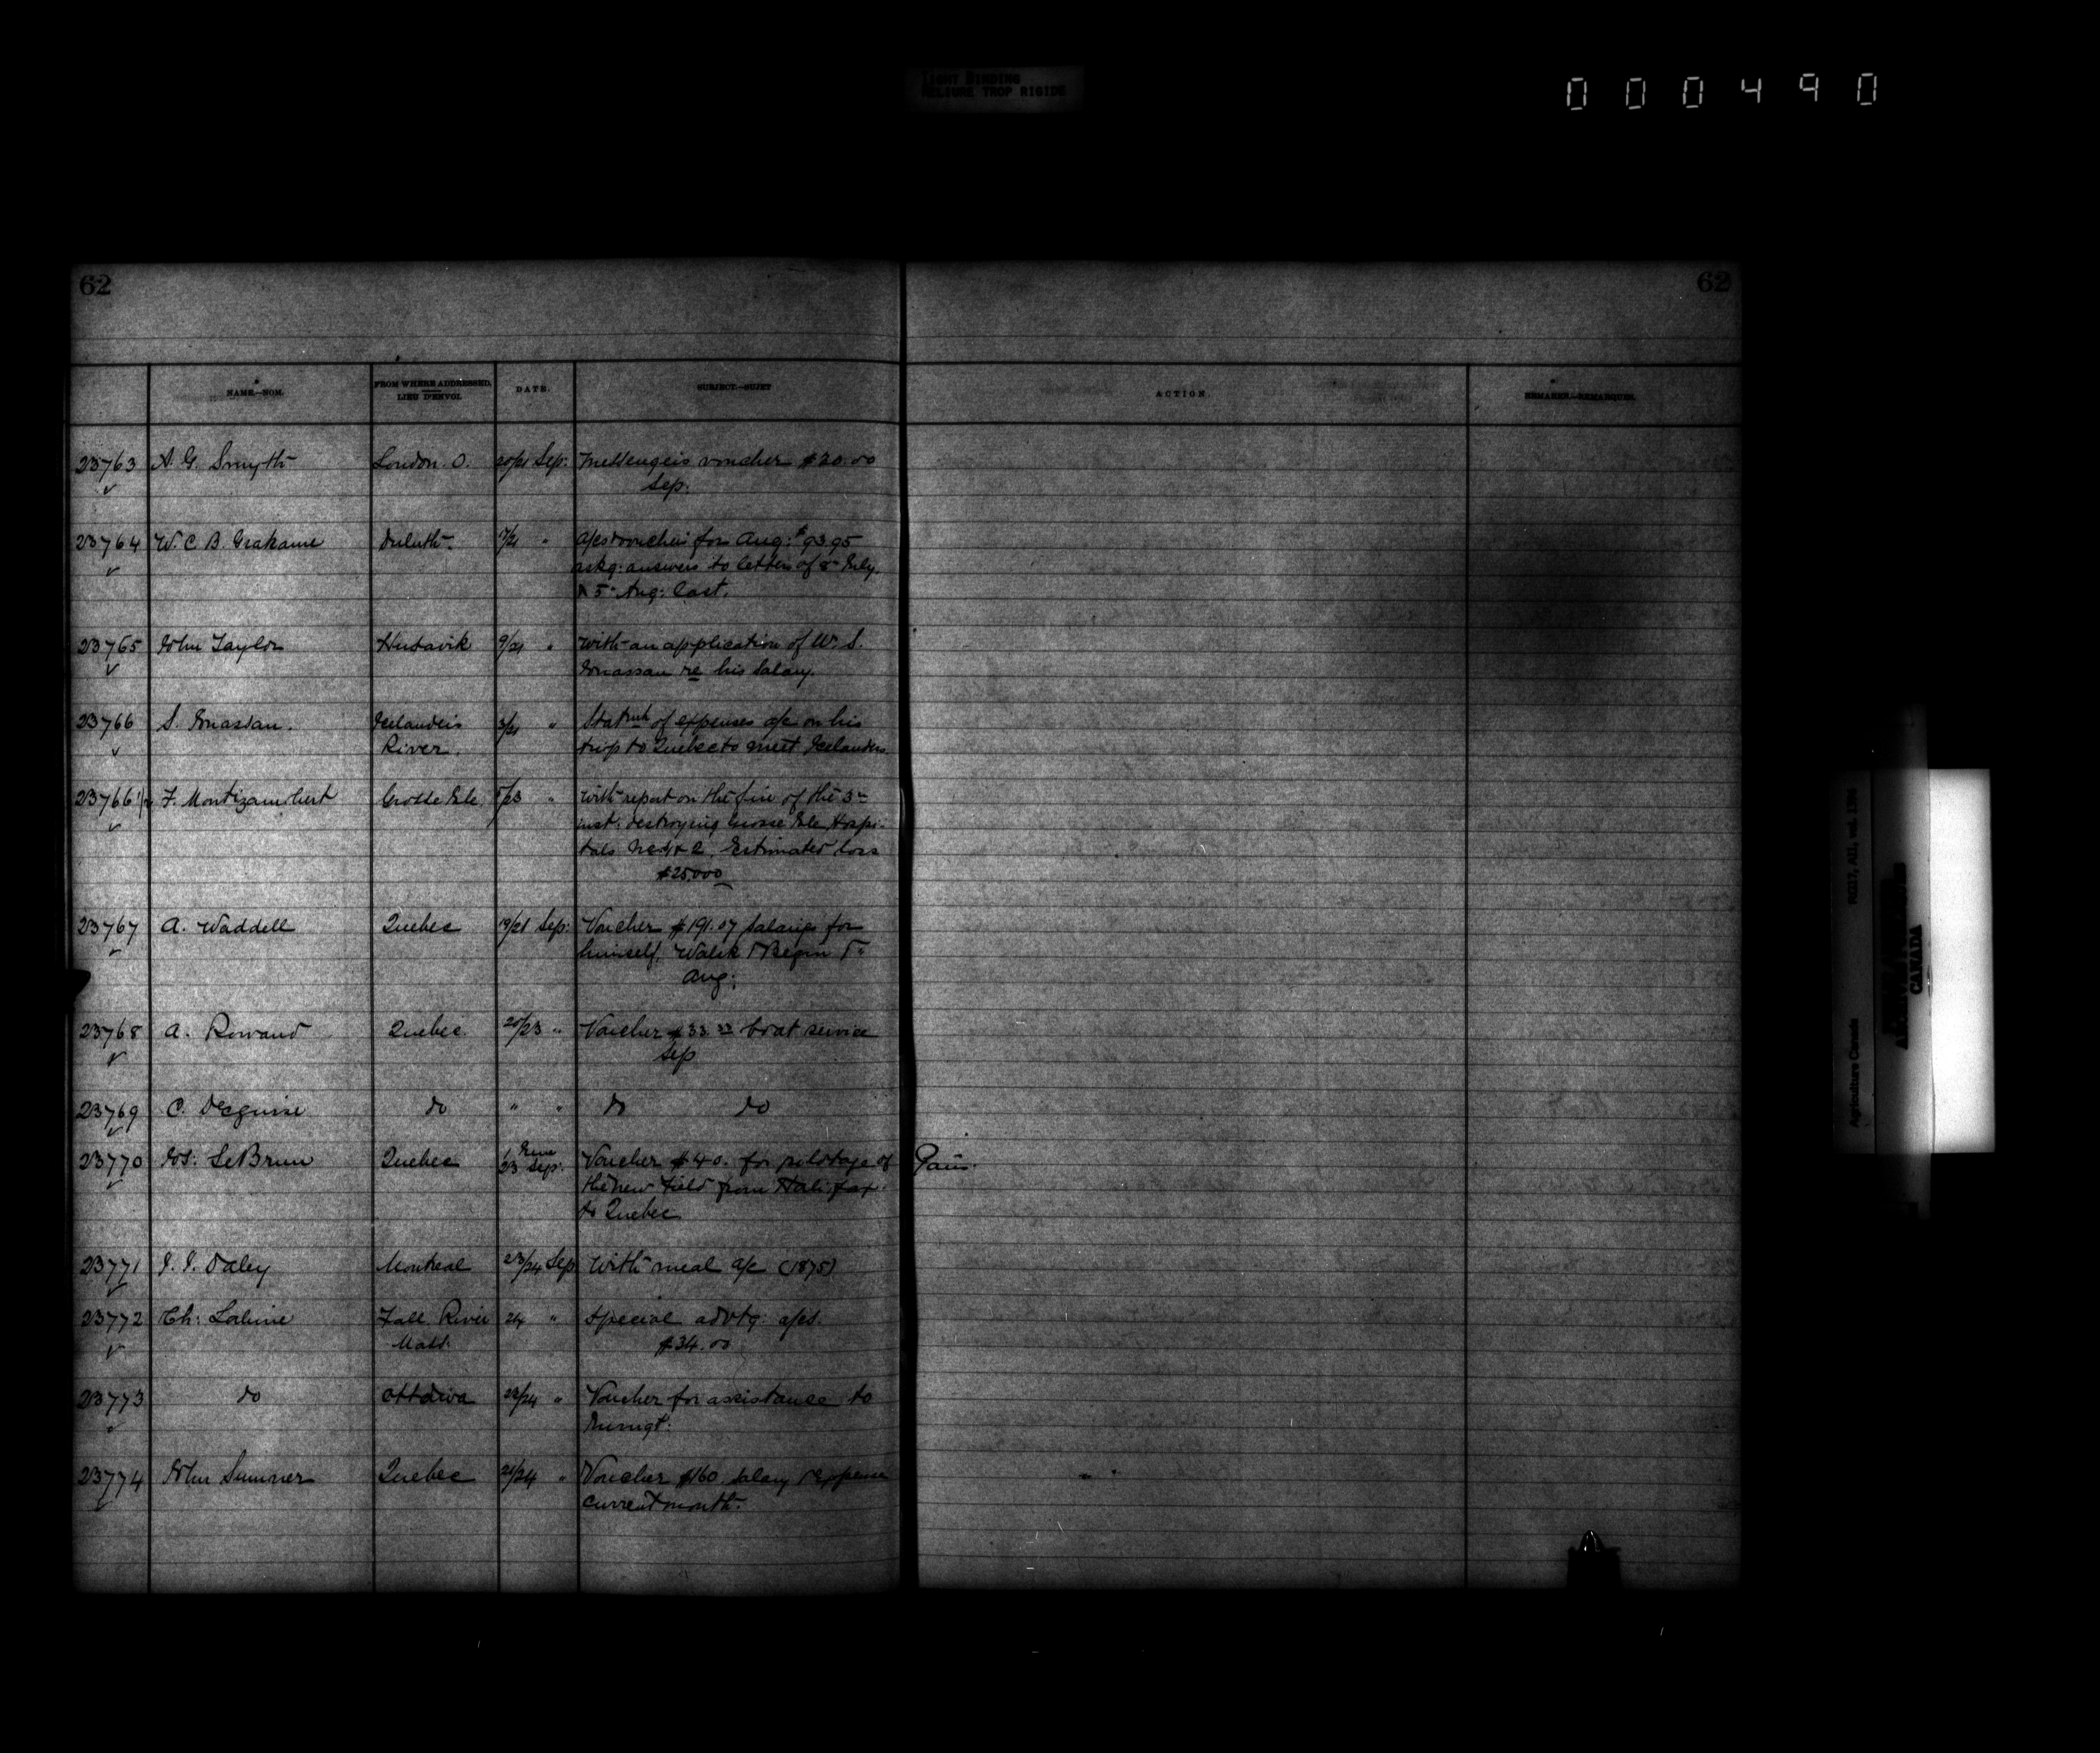 TIGHT BINDING
RELIURE TROP RIGIDE
000490
62
62
NAME.—NOM.
FROM WHERE ADDRESSED.
LIEU D'ENVOI.
DATE.
SUBJECT.—SUJET
ACTION.
REMARKS.—REMARQUES.
23763 A. G. Smyth London. O. 20/21 Sep: Messengers voucher $20.00
Sep:
23764 W. C. B. Grahame Duluth. 17/21 " a/cs & voucher for Aug: $93.95
askg: answers to letters of 8th July
& 5th Aug: last.
23765 John Taylor Husavik 9/21 " With an application of W. S.
Jonassan re his salary.
23766 S. Jonassan. Icelanders 3/21 " Statmt of expenses a/c on his
River. trip to Quebec to meet Icelanders
23766 1/2 F. Montizambert Grosse Isle /23 " With report on the fire of the 3rd
inst: destroying Grosse Isle Hospi-
tals No 1 & 2. Estimated loss
$25,000
23767 A. Waddell Quebec 19/21 Sep: Voucher $191.07 salaries for
himself, &
Aug:
23768 A. Rowand Quebec 20/23 " Voucher $33.33 boat service
Sep
23769 C. Deguise do " " do do
23770 Jos: LeBrun Quebec June
/23 Sep: Voucher $40. for pilotage of
the new Field from Halifax
to Quebec
23771 J. J. Daley Montreal 23/24 Sep With meal a/c (1875)
23772 Ch: Lalime Fall River 24 " Special advtg: a/cs.
Mass. $34.00
23773 do Ottawa 22/24 " Voucher for assistance to
Immigt:
23774 John Sumner Quebec 21/24 " Voucher $160. salary & expense
current month.
RG17, AII, vol. 1396
Agriculture Canada
CANADA